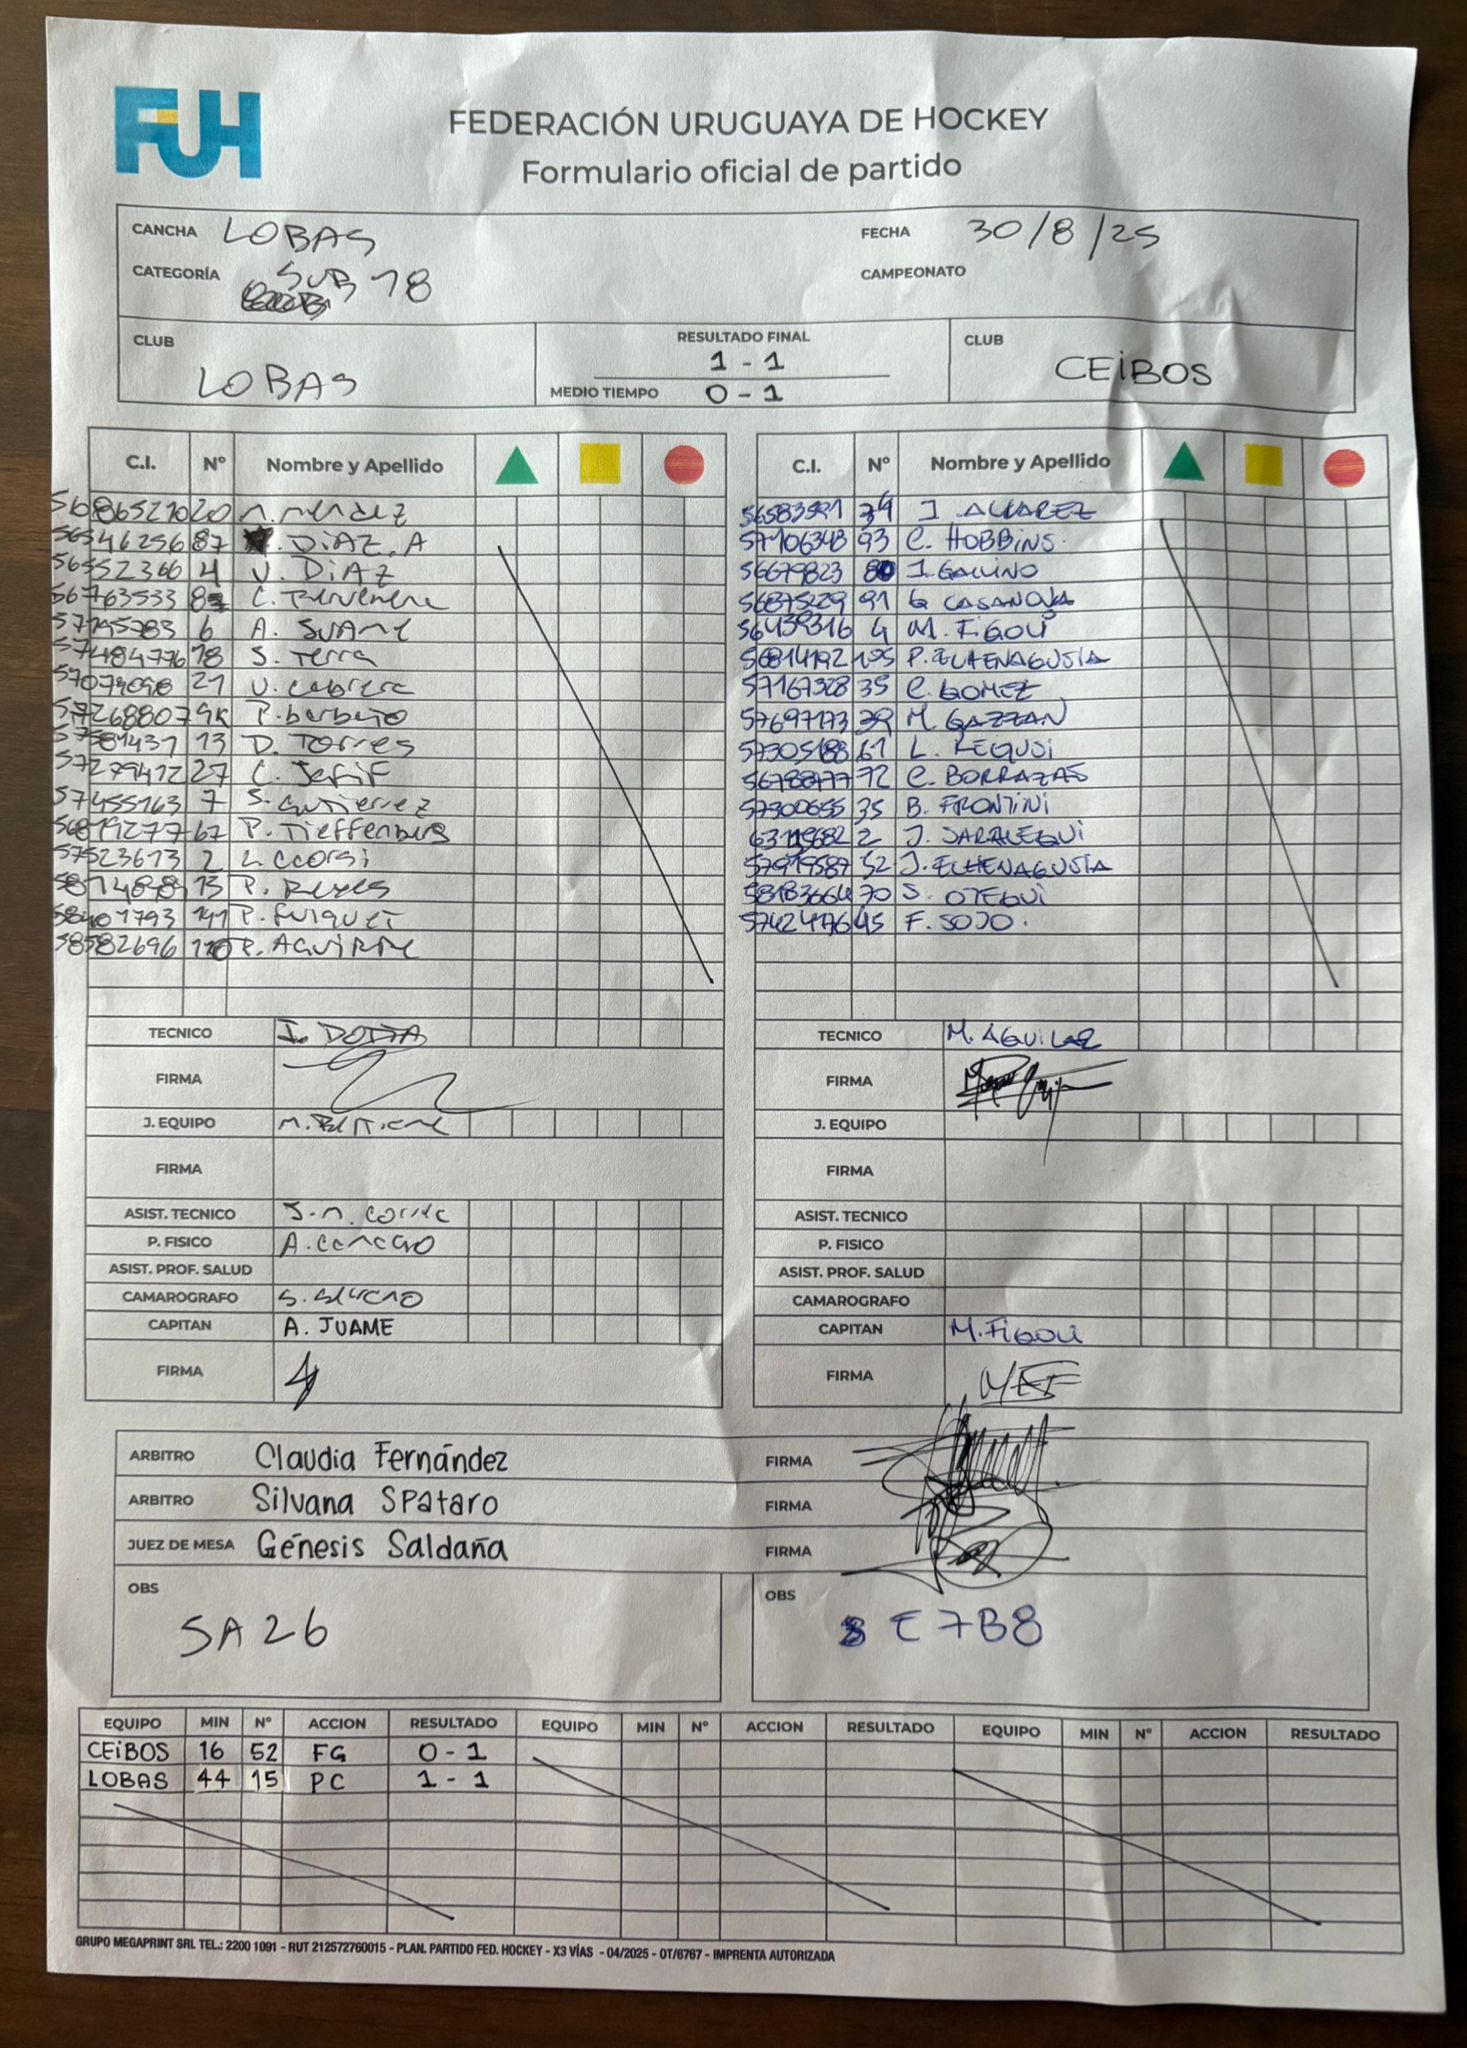 FUH
FEDERACIÓN URUGUAYA DE HOCKEY
Formulario oficial de partido
CANCHA LOBAS FECHA 30/8/25
CATEGORÍA SUB 18 CAMPEONATO
CLUB LOBAS RESULTADO FINAL 1 - 1 CLUB CEIBOS
MEDIO TIEMPO 0 - 1
C.I. Nº Nombre y Apellido C.I. Nº Nombre y Apellido
56865210 20 M. Mendez 56583591 J. ALVAREZ
56546256 87 DIAZ. A 57106348 93 C. HOBBINS.
56552366 4 V. DIAZ 56679823 80 J. GALLINO
56763533 C. 56875229 91 G CASANOVA
57795783 6 A. 56439316 4 M. FIGOLI
57484776 18 S. Terra 56814192 P. ELHENAGUSIA
57073098 21 V. Cabrera 57167328 35 C. GOMEZ
57268807 P. 57697173 39 M. GAZZAN
57581431 13 D. TORRES 57305188 61 L. REQUOI
57279412 27 C. 56788777 72 C. BORRAZAS
57455163 7 S. Gutierrez 57300655 35 B. FRONTINI
56819277 67 P. Tieffenberg 2 J. SARALEGUI
57523613 2 L. 57919587 52 J. ELHENAGUSIA
13 P. Reyes 58183664 70 S. OTEGUI
58401793 141 P. FUIQUET 57424176 45 F. SOJO.
58582696 110 P. AGUIRRE
TECNICO J. DOTTA TECNICO M. AGUILAR
FIRMA FIRMA
J. EQUIPO M. J. EQUIPO
FIRMA FIRMA
ASIST. TECNICO J.M. ASIST. TECNICO
P. FISICO A. P. FISICO
ASIST. PROF. SALUD ASIST. PROF. SALUD
CAMAROGRAFO S. CAMAROGRAFO
CAPITAN A. JUAME CAPITAN M. FIGOLI
FIRMA FIRMA MEF
ARBITRO Claudia Fernández FIRMA
ARBITRO Silvana Spataro FIRMA
JUEZ DE MESA Génesis Saldaña FIRMA
OBS OBS
SA26 E7B8
EQUIPO MIN Nº ACCION RESULTADO EQUIPO MIN Nº ACCION RESULTADO EQUIPO MIN Nº ACCION RESULTADO
CEIBOS 16 52 FG 0 - 1
LOBAS 44 15 PC 1 - 1
GRUPO MEGAPRINT SRL TEL.: 2200 1091 - RUT 212572760015 - PLAN. PARTIDO FED. HOCKEY - X3 VÍAS - 04/2025 - OT/6767 - IMPRENTA AUTORIZADA